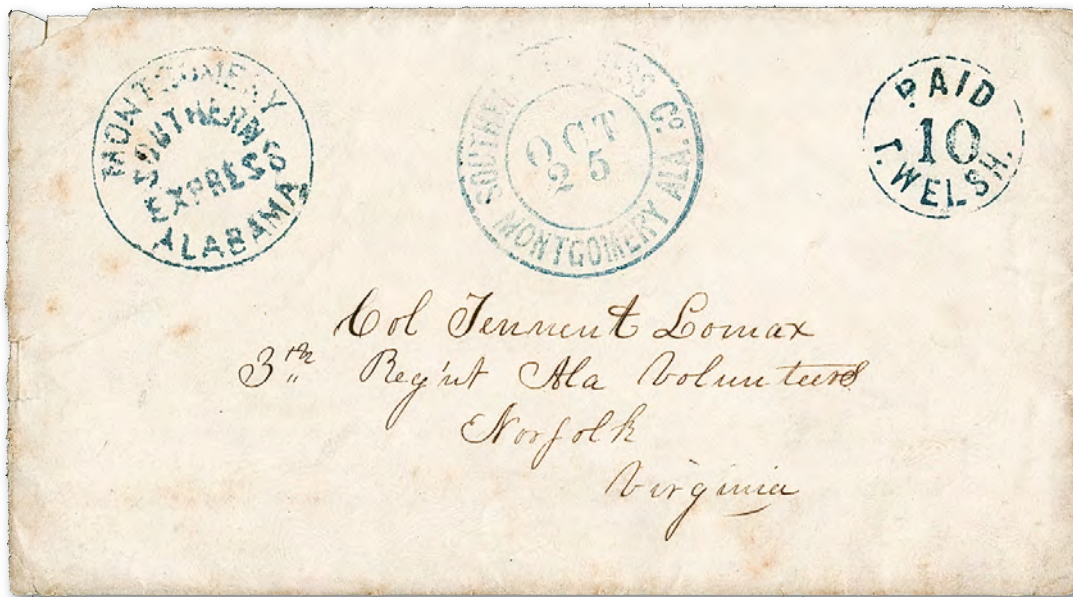 MONTGOMERY
SOUTHERN
EXPRESS
ALABAMA
SOUTHERN EXPRESS Co.
OCT
25
MONTGOMERY ALA.
PAID
10
T. WELSH.
Col Tennent Lomax
3th Reg'nt Ala Volunteers
Norfolk
Virginia